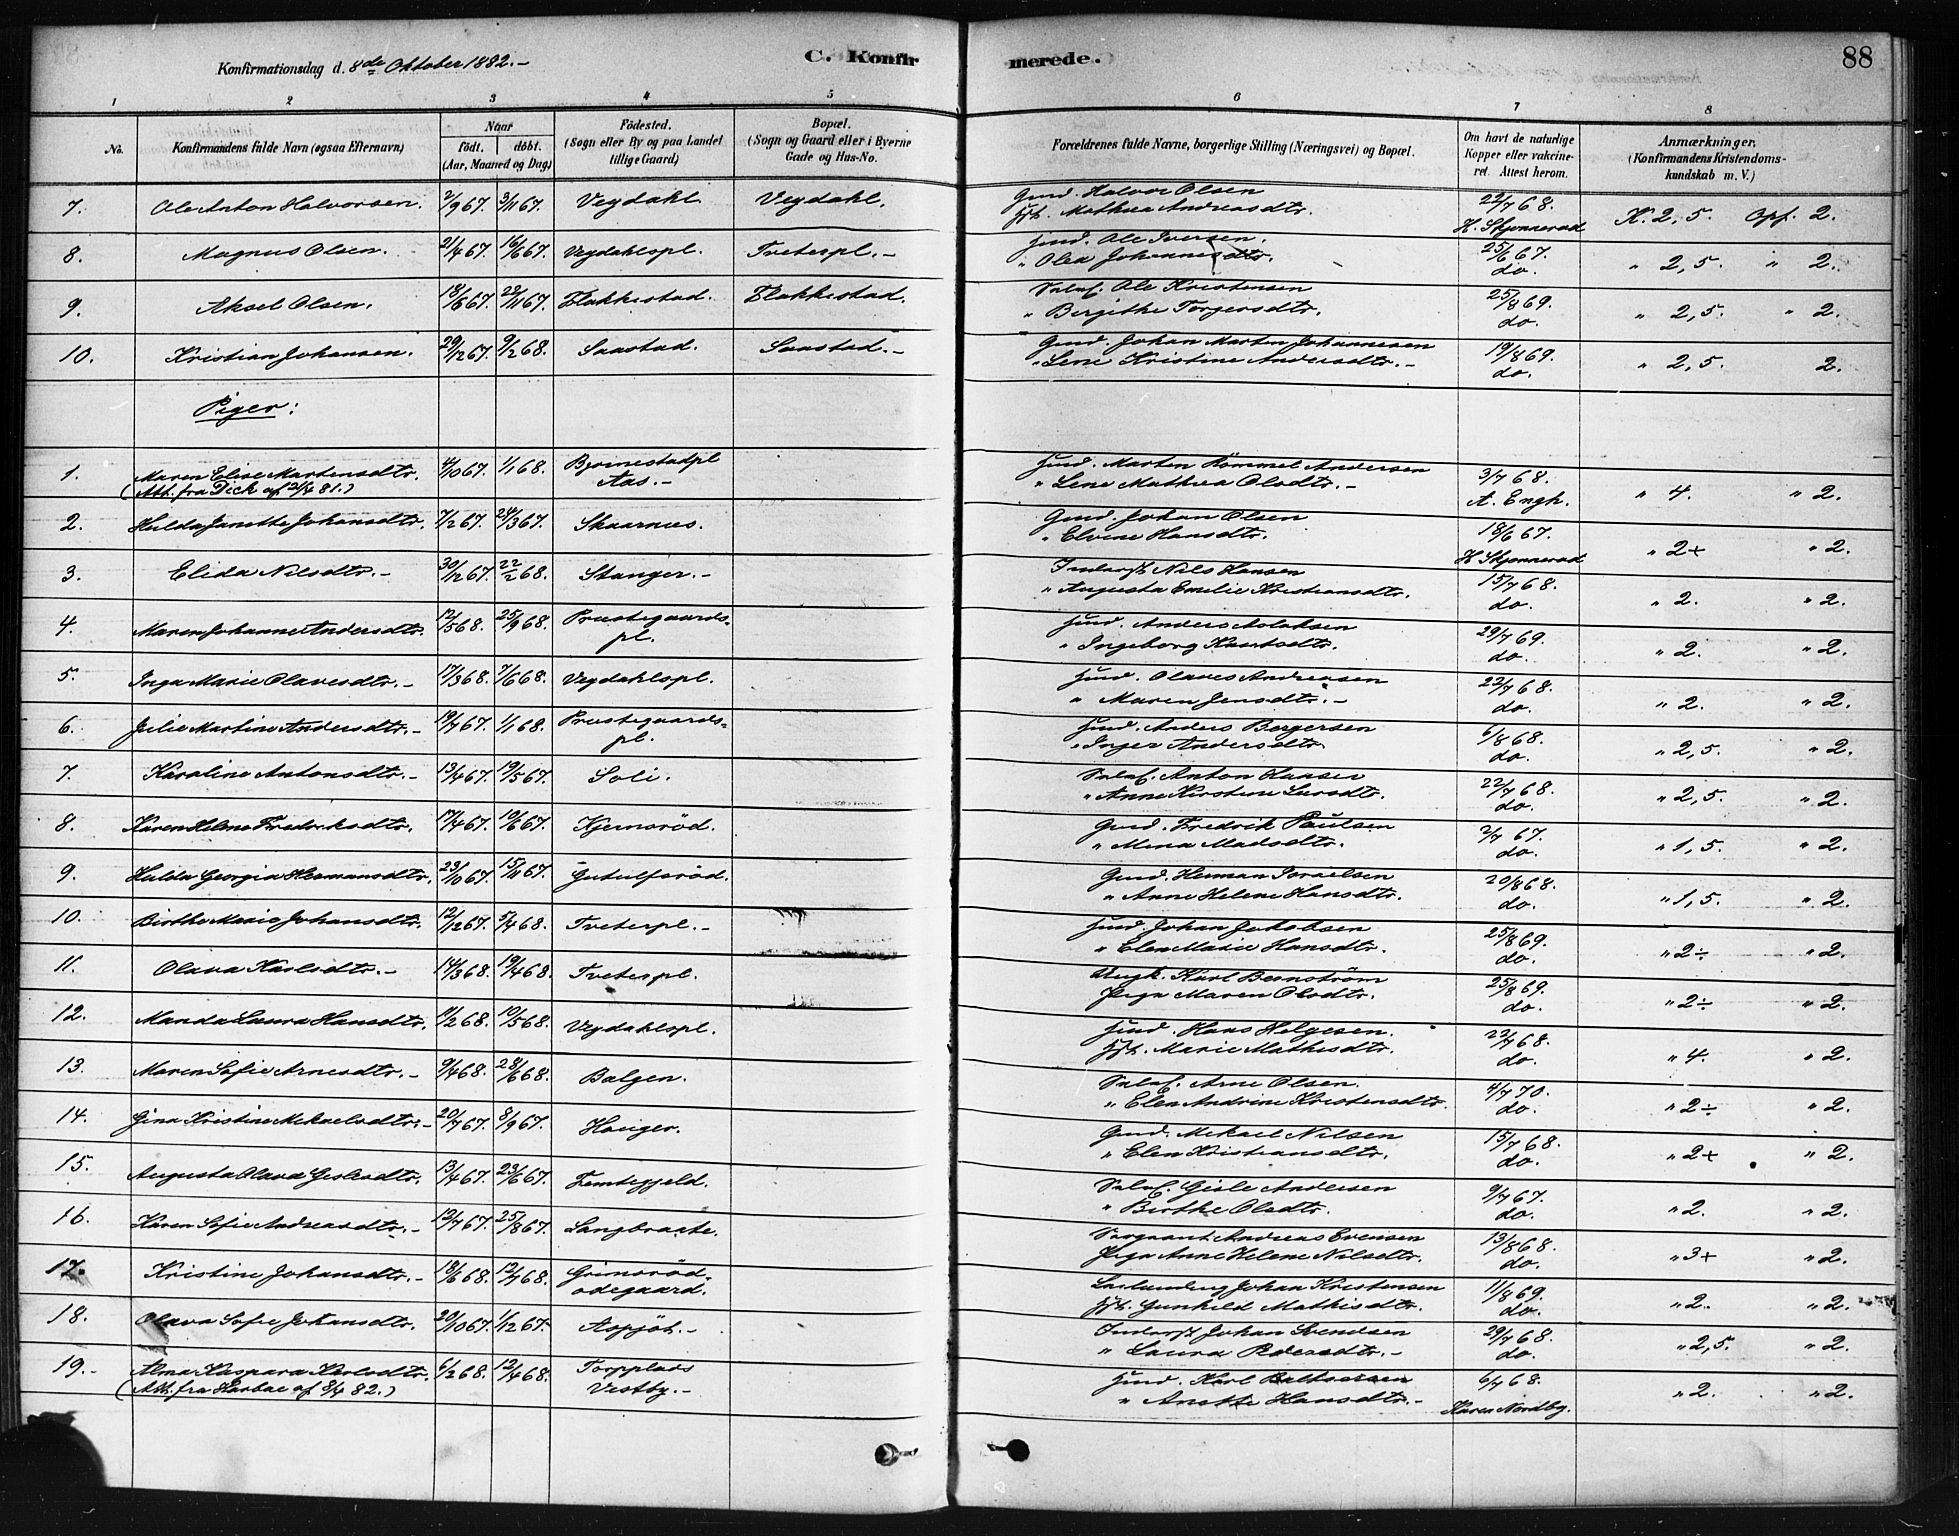 Konfirmationsdag d. 8de Oktober 1882.-
C. Konfirmerede.
88
1 2 3 4 5 6 7 8
No. Konfirmandens fulde Navn (ogsaa Efternavn) Naar födt. döbt. (Aar, Maaned og Dag) Födested. (Sogn eller By og paa Landet tillige Gaard) Bopæl. (Sogn og Gaard eller i Byerne Gade og Hus-No. Forældrenes fulde Navne, borgerlige Stilling (Næringsvei) og Bopæl. Om havt de naturlige Kopper eller vakcineret. Attest herom. Anmærkninger. (Konfirmandens Kristendomskundskab m. V.)
7. Ole Anton Halvorsen. 2/9 67. 3/11 67. Vegdahl Vegdahl. Gmd. Halvor Olsen 22/7 68. K. 2,5. Opf. 2.
Mathea Andreasdtr. H. Skjønnerød
8. Magnus Olsen. 21/4 67. 16/6 67. Vegdahlspl. Tveterpl.- Hmd. Ole Iversen. 25/6 67. " 2,5. " 2.
" Olea Johannesdtr. do.
9. Aksel Olsen. 18/8 67. 22/11 67. Flakkestad. Flakkestad. Ole Kristensen 25/8 69. " 2,5. " 2.
" Bergithe Torgersdtr. do.
10. Kristian Johansen. 29/12 67. 9/2 68. Saastad. Saastad.- Gmd. Johan Martin Johannesen 19/8 69. " 2,5. 2.
" Lene Kristine Andersdtr.- do.
Piger:
1. Maren Elise Martinsdtr. 4/10 67. 1/1 68. Bjørnestadpl Aas.- Hmd. Marten Rømmel Andersen 3/7 68. " 4. " 2.
(Att. fra Dick af 21/4 81.) " Lene Mathea Olsdtr.- A. Engh.
2. Hulda Janette Johansdtr. 7/2 67. 24/3 67. Skaarnes. Gmd. Johan Olsen 18/6 67. " 2+ " 2.
" Elvine Hansdtr. H Skjønnerød
3. Elida Nilsdtr.- 30/12 67. 22/2 68. Stanger.- Inderst Nils Hansen 15/7 68. " 2. " 2.
" Augusta Emilie Kristiansdtr. do.
4. Maren Johanne Andersdtr. 12/5 68. 25/9 68. Præstegaardspl. Hmd. Anders Aslaksen 29/7 69. " 2. " 2.
" Ingeborg Knutsdtr. do.
5. Inga Marie Olavesdtr.- 17/3 68. 7/6 68. Vegdahlspl. Hmd. Olaves Andreasen 22/7 68. " 2. " 2.
" Maren Jensdtr.- do.
6. Julie Martine Andersdtr.- 19/7 67. 1/1 68. Præstegaardspl. Hmd. Anders Bergersen 6/8 68. " 2,5. " 2.
" Inger Andersdtr. do.
7. Karoline Antonsdtr.- 13/4 67. 19/5 67. Soli. Anton Hansen 22/7 68. " 2,5. " 2.
" Anne Kirstine Larsdtr. do.
8. Karen Helene Fredriksdtr. 17/4 67. 10/6 67. Kjernsrød. Gmd. Fredrik Paulsen 2/7 67. " 1,5. " 2.
" Mina Madsdtr. do.
9. Hulda Georgia Hermansdtr. 23/10 67. 15/11 67. Gutulfsrød. Gmd. Herman Israelsen 20/8 68. " 1,5. " 2.
" Anne Helene Hansdtr. do.
10. Birthe Marie Johansdtr. 12/12 67. 5/4 68. Tveterpl.- Hmd. Johan Jakobsen 25/8 69. " 2÷ " 2.
" Elen Marie Hansdtr. do.
11. Olava Karlsdtr.- 14/3 68. 19/4 68. Tveterpl. Ungk. Karl Bernstrøm 25/8 69. " 2÷ " 2.
Pige Maren Olsdtr. do.
12. Manda Laura Hansdtr. 11/2 68. 10/5 68. Vegdahlspl. Hmd. Hans Helgesen. 22/7 68. " 4. " 2.
Marie Mathisdtr. do.
13. Maren Sofie Arnesdtr.- 9/4 68. 28/6 68. Bolgen. Arne Olsen. 4/7 70. " 2÷ " 2.
" Elen Andrine Kristensdtr. do.
14. Gina Kristine Mikaelsdtr.- 20/7 67. 8/9 67. Hauger. Gmd. Mikael Nilsen 15/7 68. " 2+ " 2.
" Elen Kristiansdtr. do.
15. Augusta Olava Gislesdtr. 13/4 67. 23/6 67. Femtegjeld. Gisle Andersen 9/7 67. " 2. " 2.
" Birthe Olsdtr. do.
16. Karen Sofie Andreasdtr.- 12/7 67. 25/8 67. Langbraate. Sergeant Andreas Evensen 13/8 68. " 3+ " 2.
Pige Anne Helene Nilsdtr. do.
17. Kristine Johansdtr.- 13/6 68. 12/7 68. Grimsrødødegaard. Johan Kristensen 11/8 69. " 2. " 2.
Gunhild Mathisdtr. do.
18. Olava Sofie Johansdtr. 20/10 67. 1/12 67. Aspjøt.- Inderst Johan Svendsen 29/7 68. " 2,5. " 2.
" Laura Pedersdtr.- do.
19.- Alma Kaspara Karlsdtr. 6/2 68. 12/4 68. Torpplads Vestby.- Hmd. Karl Baltsersen 6/7 68. " 2. " 2.
(Att. fra Harbae af 8/4 82.) " Anette Hansdtr.- Karen Nordby.